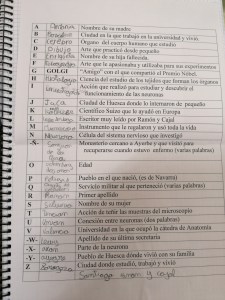 A Antonia Nombre de su madre
B Ciudad en la que trabajó en la universidad y vivió
C Cerebro Órgano del cuerpo humano que estudió
D Dibujo Arte que practicó desde pequeño
E Enriqueta Nombre de su hija fallecida
F Fotografía Arte que le apasionaba y utilizaba para sus experimentos
G GOLGI "Amigo" con el que compartió el Premio Nobel.
H Histología Ciencia del estudio de los tejidos que forman los órganos
I Acción que realizó para estudiar y descubrir el
"funcionamiento de las neuronas
J Jaca Ciudad de Huesca donde lo internaron de pequeño
K Científico Suizo que le ayudó en Europa
L Escritor muy leído por Ramón y Cajal
M Microscopio Instrumento que le regalaron y usó toda la vida
N Neurona Célula del sistema nervioso que investigó
-S- Monasterio cercano a Ayerbe y que visitó para
recuperarse cuando estuvo enfermo (varias palabras)
O Edad
P Petilla Pueblo en el que nació, (es de Navarra)
Q Servicio militar al que perteneció (varias palabras)
R Ramón Primer apellido
S Silveria Nombre de su mujer
T Acción de teñir las muestras del microscopio
U Conexión entre neuronas (dos palabras)
V Universidad en la que ocupó la cátedra de Anatomía
-W- Apellido de su última secretaria
-X- Parte de la neurona
-Y- Ayerbe Pueblo de Huesca dónde vivió con su familia
Z Zaragoza Ciudad dónde estudió, trabajó y vivió
Santiago ramón y cajal